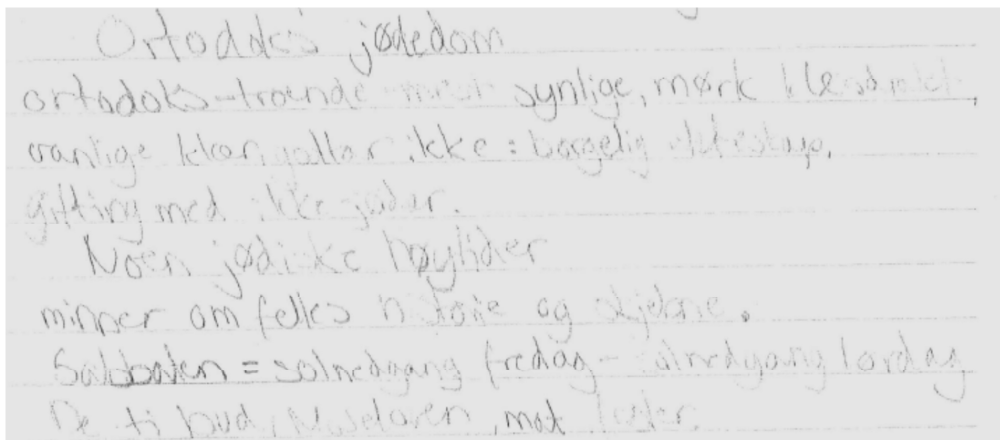 Ortodoks jødedom
ortodoks-troende mest synlige, mørk klesdrakt,
vanlige klær, godtar ikke: borgelig ekteskap,
gifting med ikke jøder.
Noen jødiske høytider
minner om felles historie og skjebne.
Sabbaten = solnedgang fredag - solnedgang lørdag
De ti bud, Moseloven, mat